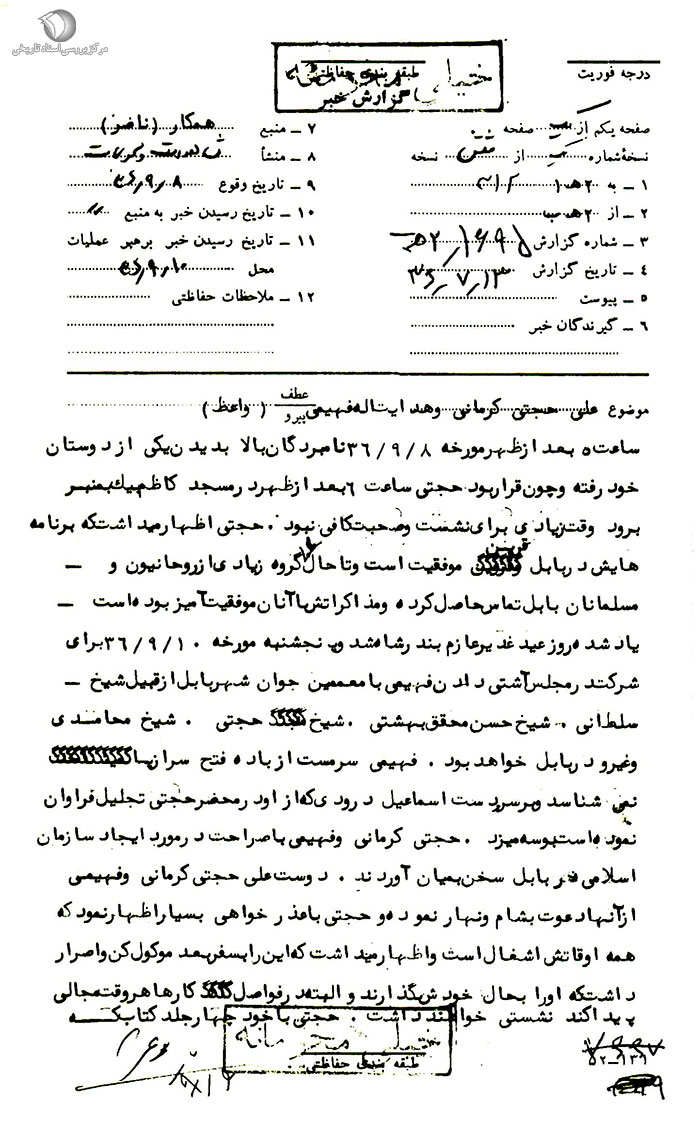 مرکز بررسی اسناد تاریخی
درجه فوریت
طبقه بندی حفاظتی
گزارش خبر
صفحه یکم از یک صفحه
نسخه شماره از شش نسخه
۱ ـ به ۲۰ هـ ۱ ۳۱۲
۲ ـ از ۲۰ هـ ب
۳ ـ شماره گزارش
۴ ـ تاریخ گزارش
۵ ـ پیوست
۶ ـ گیرندگان خبر
۷ ـ منبع همکار (ناضر)
۸ ـ منشأ
۹ ـ تاریخ وقوع ۳۶٫۹٫۸
۱۰ ـ تاریخ رسیدن خبر به منبع "
۱۱ ـ تاریخ رسیدن خبر برهبر عملیات
محل ۳۶٫۹٫۱۰
۱۲ ـ ملاحظات حفاظتی
موضوع علی حجتی کرمانی وهدایت اله فهیمی (واعظ)
عطف
پیرو
ساعت ۵ بعد ازظهر مورخه ۳۶/۹/۸ نامبردگان بالا بدیدن یکی از دوستان
خود رفته وچون قرار بود حجتی ساعت ۶ بعد ازظهر در مسجد کاظم بیك بمنبر
برود وقت زیادی برای نشست وصحبت کافی نبود . حجتی اظهار میداشت که برنامه
هایش در بابل قرین موفقیت است وتا حال با گروه زیادی از روحانیون و ـ
مسلمانان بابل تماس حاصل کرده ومذاکراتش با آنان موفقیت آمیز بوده است ـ
یاد شده روز عید غدیر عازم بندر شاه شد وپنجشنبه مورخه ۳۶/۹/۱۰ برای
شرکت در مجلس آشتی دادن فهیمی با معممین جوان شهر بابل از قبیل شیخ ـ
سلطانی . شیخ حسن محقق بهشتی . شیخ حجتی . شیخ محامدی
وغیرو در بابل خواهد بود . فهیمی سرمست از باده فتح سر از پا
نمی شناسد وبر سر دست اسماعیل درودی که از او در محضر حجتی تجلیل فراوان
نموده است بوسه میزد . حجتی کرمانی وفهیمی با صراحت در مورد ایجاد سازمان
اسلامی در بابل سخن بمیان آوردند . دوست علی حجتی کرمانی وفهیمی
از آنها دعوت بشام ونهار نموده و حجتی با عذر خواهی بسیار اظهار نمود که
همه اوقاتش اشغال است واظهار میداشت که این را بسفر بعد موکول کن واصرار
داشت که اورا بحال خودش بگذارند و البته در فواصل کارها هر وقت مجالی
پیدا کند نشستی خواهند داشت . حجتی با خود چهار جلد کتاب که
طبقه بندی حفاظتی
۵۲-۱۳۱